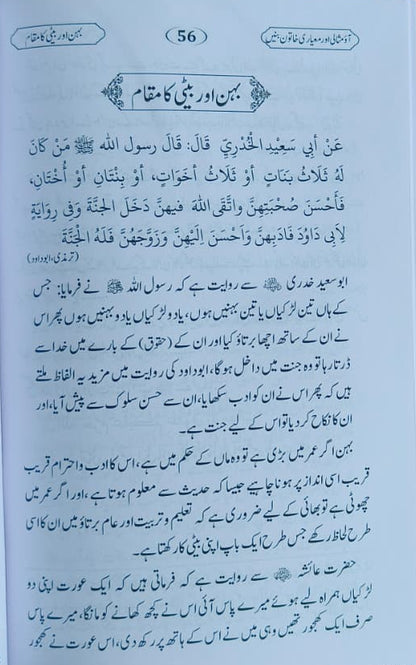 آؤ مثالی اور معیاری خاتون بنیں
56
بہن اور بیٹی کا مقام
بہن اور بیٹی کا مقام
عَنْ أَبِي سَعِيْدٍ الْخُدْرِيِّ قَالَ: قَالَ رسول الله ﷺ مَنْ كَانَ
لَهُ ثَلَاثُ بَنَاتٍ أَوْ ثَلَاثُ أَخَوَاتٍ، أَوْ بِنْتَانِ أَوْ أُخْتَانِ،
فَأَحْسَنَ صُحْبَتَهِنَّ وَاتَّقَى اللهَ فِيهِنَّ دَخَلَ الْجَنَّةَ وَفِي رِوَايَةٍ
لِأَبِي دَاوُدَ فَأَدَبِهِنَّ وَأَحْسَنَ اِلَيْهِنَّ وَزَوَّجَهُنَّ فَلَهُ الْجَنَّةَ
(ترمذی، ابوداود)
ابوسعید خدری ؓ سے روایت ہے کہ رسول اللہ ﷺ نے فرمایا: جس
کے ہاں تین لڑکیاں یا تین بہنیں ہوں، یا دو لڑکیاں یا دو بہنیں ہوں پھر اس
نے ان کے ساتھ اچھا برتاؤ کیا اور ان کے (حقوق) کے بارے میں خدا سے
ڈرتا رہا تو وہ جنت میں داخل ہوگا، ابوداود کی روایت میں مزید یہ الفاظ ملتے
ہیں کہ پھر اس نے ان کو ادب سکھایا، ان سے حسن سلوک سے پیش آیا، اور
ان کا نکاح کر دیا تو اس کے لیے جنت ہے۔
بہن اگر عمر میں بڑی ہے تو وہ ماں کے حکم میں ہے، اس کا ادب و احترام قریب
قریب اسی انداز پر ہونا چاہیے جیسا کہ حدیث سے معلوم ہوتا ہے، اور اگر عمر میں
چھوٹی ہے تو بھائی کے لیے ضروری ہے کہ تعلیم و تربیت اور عام برتاؤ میں ان کا اسی
طرح لحاظ رکھے جس طرح ایک باپ اپنی بیٹی کا رکھتا ہے۔
حضرت عائشہ ؓ سے روایت ہے کہ فرماتی ہیں کہ ایک عورت اپنی دو
لڑکیاں ہمراہ لیے ہوئے میرے پاس آئی اس نے کچھ کھانے کو مانگا، میرے پاس
صرف ایک کھجور تھیں وہی میں نے اس کے ہاتھ پر رکھ دی، اس عورت نے کھجور